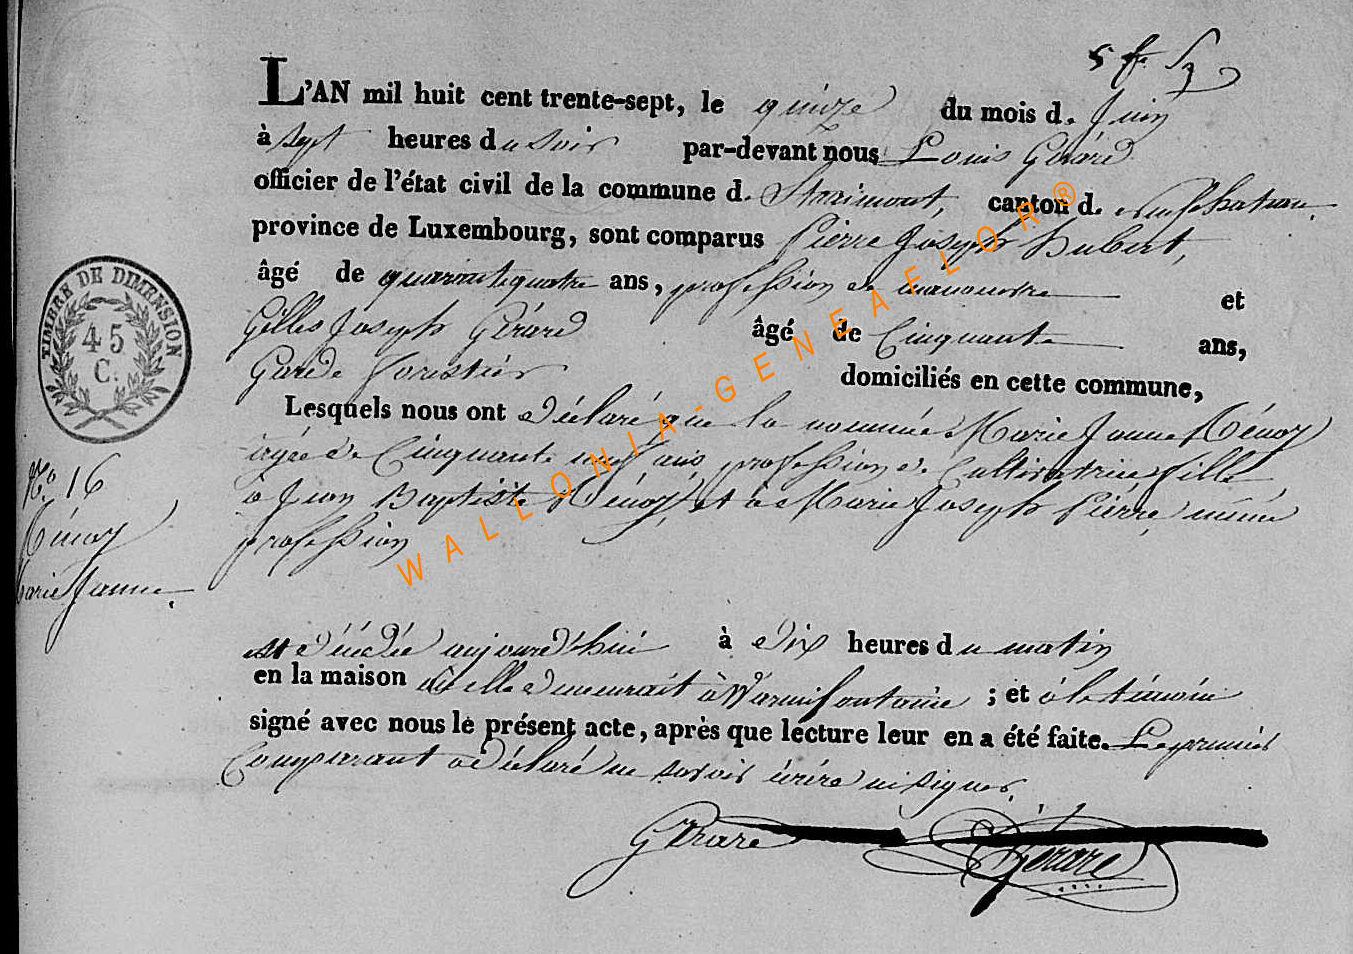 L'AN mil huit cent trente-sept, le quinze du mois d. Juin
à sept heures du soir par-devant nous Louis Gérard
officier de l'état civil de la commune d. Straimont, canton d. neufchateau
province de Luxembourg, sont comparus Pierre Joseph Hubert,
âgé de quarante quatre ans, profession de manouvre et
Gilles Joseph Gérard âgé de Cinquante ans,
Garde forestier domiciliés en cette commune,
Lesquels nous ont déclaré que la nommée Marie Jeanne Ménoy
agée de Cinquante neuf ans profession de Cultivatrice fille
à Jean Baptiste Ménoy et à Marie Joseph Pierre, même
profession
est décédée aujourd'hui à dix heures du matin
en la maison où elle demeurait à Warmifontaine ; et à le témoin
signé avec nous le présent acte, après que lecture leur en a été faite. Le premier
Comparant a déclaré ne savoir écrire ni signer.
Gérard Gérard
TIMBRE DE DIMENSION
45
C.
N.o 16
Ménoy
Marie Jeanne
WALLONIA-GENEAELOR®